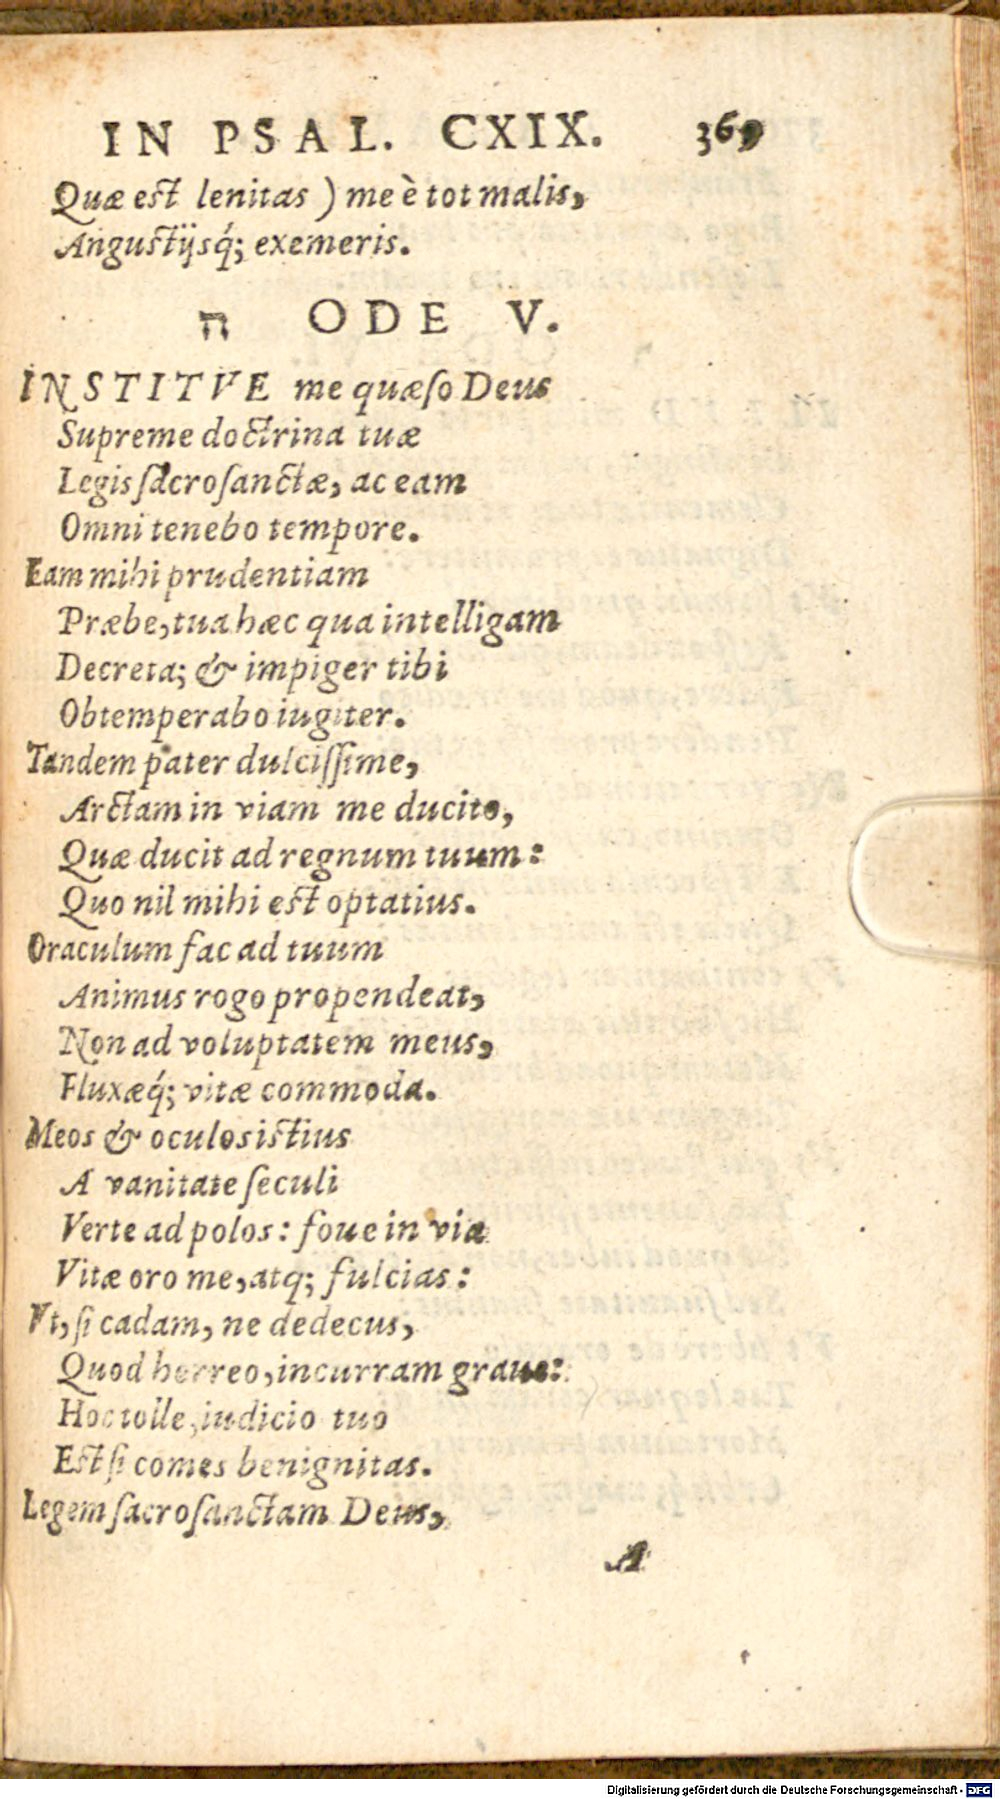 IN PSAL. CXIX. 369
Quæ est lenitas ) me è tot malis,
Angustijsq́; exemeris.
ה ODE V.
INSTITVE me quæſo Deus
Supreme doctrina tuæ
Legis ſacroſanctæ, ac eam
Omni tenebo tempore.
Eam mihi prudentiam
Præbe, tua hæc qua intelligam
Decreta; & impiger tibi
Obtemperabo iugiter.
Tandem pater dulciſſime,
Arctam in viam me ducito,
Quæ ducit ad regnum tuum:
Quo nil mihi est optatius.
Oraculum fac ad tuum
Animus rogo propendeat,
Non ad voluptatem meus,
Fluxæq́; vitæ commoda.
Meos & oculos istius
A vanitate ſeculi
Verte ad polos: foue in via
Vitæ oro me, atq; fulcias:
Vt, ſi cadam, ne dedecus,
Quod horreo, incurram graue:
Hoc tolle, iudicio tuo
Est ſi comes benignitas.
Legem ſacroſanctam Deus,
A
Digitalisierung gefördert durch die Deutsche Forschungsgemeinschaft - DFG